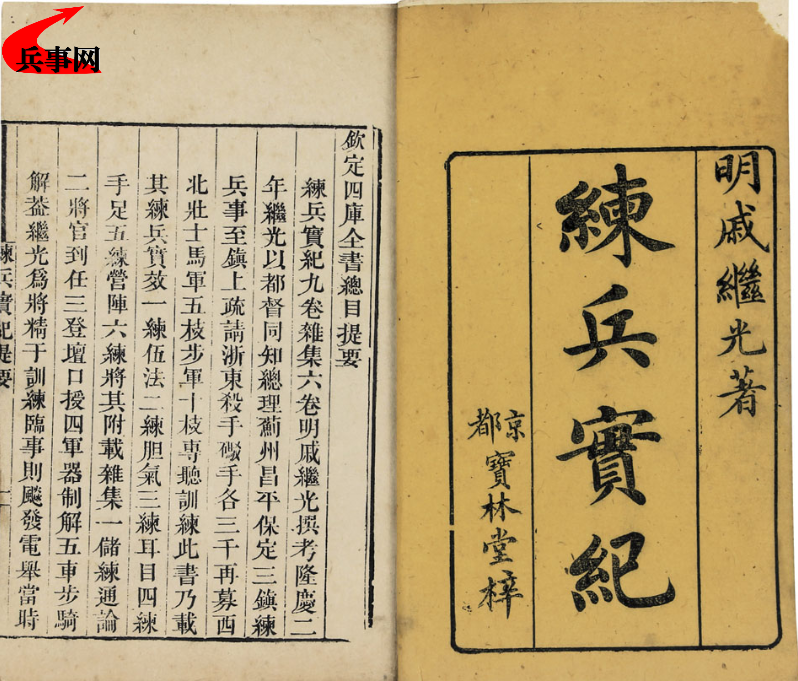 兵事网
明戚繼光著
練兵實紀
京都寶林堂梓
欽定四庫全書總目提要
練兵實紀九卷雜集六卷明戚繼光撰考隆慶二
年繼光以都督同知總理薊州昌平保定三鎮練
兵事至鎮上疏請浙東殺手礮手各三千再募西
北壯士馬軍五枝步軍十枝専聽訓練此書乃載
其練兵實效一練伍法二練胆氣三練耳目四練
手足五練營陣六練將其附載雜集一儲練通論
二將官到任三登壇口授四軍器制解五車步騎
解葢繼光爲將精于訓練臨事則飈發電舉當時
練兵實紀提要
一